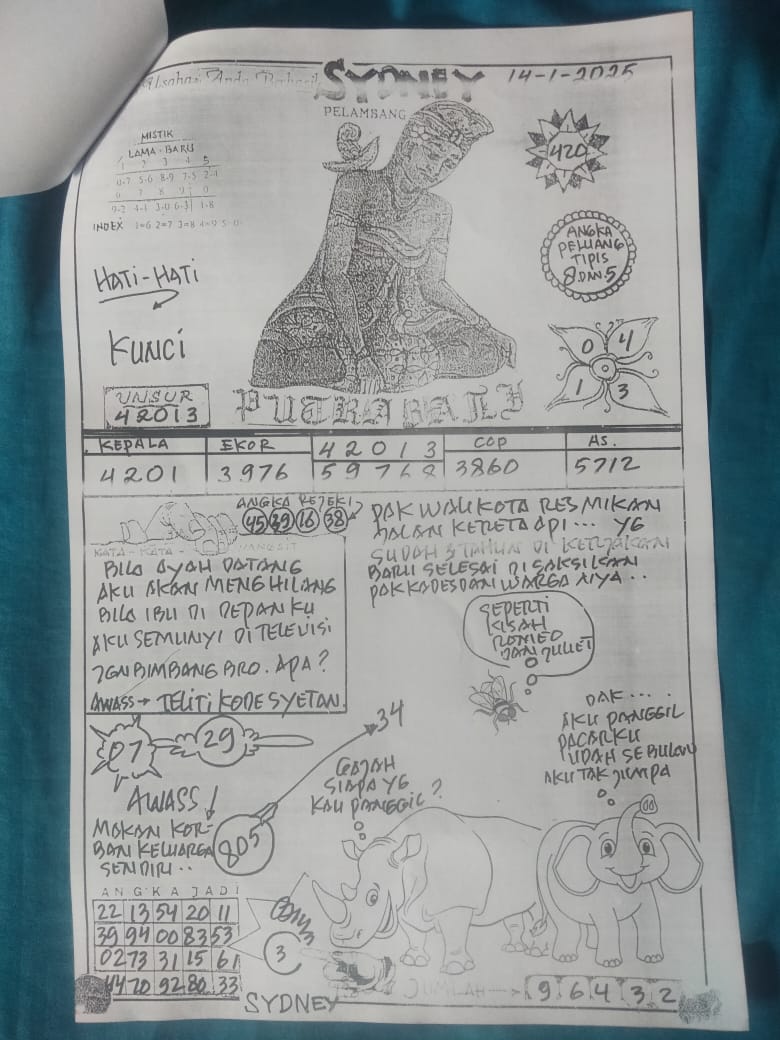 SYDNEY
14-1-2025
PELAMBANG
MISTIK
LAMA - BARU
1 2 3 4 5
0-7 5-6 8-9 7-5 2-4
0 7 8 9 0
9-2 4-1 3-0 6-3 1-8
INDEX 1=6 2=7 3=8 4=9 5-0
420
ANGKA
PELUANG
TIPIS
8 DAN 5
HATI-HATI
KUNCI
0 4
1 3
UNSUR
42013
PUTRA BALI
KEPALA EKOR 42013 COP AS.
4201 3976 59768 3860 5712
ANGKA REJEKI
45 29 16 38
PAK WALIKOTA RESMIKAN
JALAN KERETA API... YG
SUDAH 3 TAHUN DI KERJAKAN
BARU SELESAI DI SAKSIKAN
PAK KADES DAN WARGA NIYA..
KATA - KATA -
BILA AYAH DATANG
AKU AKAN MENGHILANG
BILA IBU DI DEPAN KU
AKU SEMUNYI DI TELEVISI
JGN BIMBANG BRO. APA?
AWASS → TELITI KODE SYETAN.
SEPERTI
KISAH
ROMEO
DAN JULIET
07 29
34
PAK....
AKU PANGGIL
PACARKU
UDAH SEBULAN
AKU TAK JUMPA
GAJAH
SIAPA YG
KAU PANGGIL?
AWASS!
MAKAN KOR-
BAN KELUARGA
SENDIRI..
805
ANGKA JADI
22 13 54 20 11
39 94 00 83 53
02 73 31 15 61
44 70 92 80 33
3
SYDNEY
JUMLAH → 9 6 4 3 2